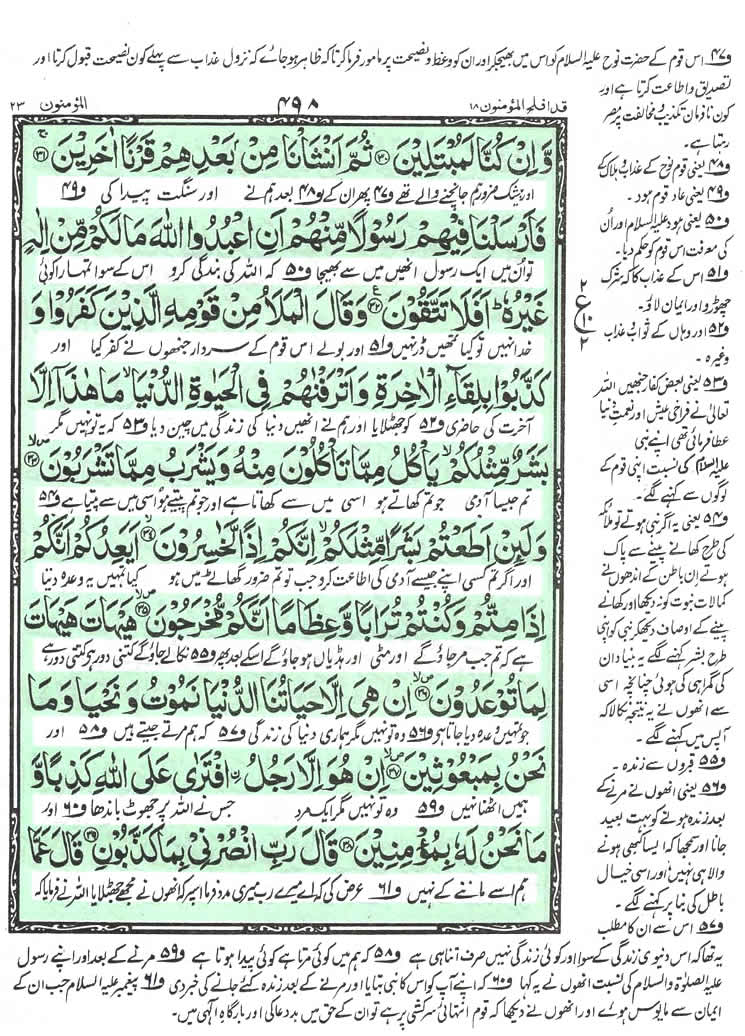 و۴۷ اس قوم کے حضرت نوح علیہ السلام کو اس میں بھیجکر اور ان کو وعظ و نصیحت پر مامور فرما کر تاکہ ظاہر ہوجائے کہ نزول عذاب سے پہلے کون نصیحت قبول کرتا اور
تصدیق و اطاعت کرتا ہے اور
کون نافرمان تکذیب و مخالفت پر مصر
رہتا ہے۔
و۴۸ یعنی قوم نوح کے عذاب و ہلاک کے
و۴۹ یعنی عاد قوم ہود۔
و۵۰ یعنی ہود علیہ السلام اور اُن
کی معرفت اس قوم کو حکم دیا۔
و۵۱ اس کے عذاب کا کہ شرک
چھوڑو اور ایمان لاؤ۔
و۵۲ اور وہاں کے ثواب و عذاب
وغیرہ۔
و۵۳ یعنی بعض کفار جنھیں اللہ
تعالیٰ نے فراخی عیش اور نعمتِ دنیا
عطا فرمائی تھی اپنے نبی
علیہ السلام کی نسبت اپنی قوم کے
لوگوں سے کہنے لگے۔
و۵۴ یعنی یہ اگر نبی ہوتے تو ملائکہ
کی طرح کھانے پینے سے پاک
ہوتے اِن باطن کے اندھوں نے
کمالات نبوت کو نہ دیکھا اور کھانے
پینے کے اوصاف دیکھکر نبی کو اپنی
طرح بشر کہنے لگے یہ بنیاد ان
کی گمراہی کی ہوئی چنانچہ اسی
سے انھوں نے یہ نتیجہ نکالا کہ
آپس میں کہنے لگے۔
و۵۵ قبروں سے زندہ۔
و۵۶ یعنی انھوں نے مرنے کے
بعد زندہ ہونے کو بہت بعید
جانا اور سمجھا کہ ایسا کبھی ہونے
والا ہی نہیں اور اسی خیال
باطل کی بنا پر کہنے لگے۔
و۵۷ اس سے ان کا مطلب
قد افلح المؤمنون ۱۸
۴۹۸
المؤمنون ۲۳
وَّاِنْ كُنَّا لَمُبْتَلِيْنَ ۳۰ ثُمَّ اَنْشَاْنَا مِنْۢ بَعْدِهِمْ قَرْنًا اٰخَرِيْنَ ۳۱
اور بیشک ضرور ہم جانچنے والے تھے و۴۷ پھر ان کے و۴۸ بعد ہم نے اور سنگت پیدا کی و۴۹
فَاَرْسَلْنَا فِيْهِمْ رَسُوْلًا مِّنْهُمْ اَنِ اعْبُدُوا اللّٰهَ مَا لَكُمْ مِّنْ اِلٰهٍ
تو اُن میں ایک رسول انھیں میں سے بھیجا و۵۰ کہ اللہ کی بندگی کرو اس کے سوا تمہارا کوئی
غَيْرُهٗ ؕ اَفَلَا تَتَّقُوْنَ ۳۲ ع وَقَالَ الْمَلَاُ مِنْ قَوْمِهِ الَّذِيْنَ كَفَرُوْا وَ
خدا نہیں تو کیا تمھیں ڈر نہیں و۵۱ اور بولے اس قوم کے سردار جنھوں نے کفر کیا اور
كَذَّبُوْا بِلِقَآءِ الْاٰخِرَةِ وَاَتْرَفْنٰهُمْ فِي الْحَيٰوةِ الدُّنْيَا ۙ مَا هٰذَاۤ اِلَّا
آخرت کی حاضری و۵۲ کو جھٹلایا اور ہم نے انھیں دنیا کی زندگی میں چین دیا و۵۳ کہ یہ تو نہیں مگر
بَشَرٌ مِّثْلُكُمْ ۙ يَاْكُلُ مِمَّا تَاْكُلُوْنَ مِنْهُ وَيَشْرَبُ مِمَّا تَشْرَبُوْنَ ۳۳
تم جیسا آدمی جو تم کھاتے ہو اسی میں سے کھاتا ہے اور جو تم پیتے ہو اسی میں سے پیتا ہے و۵۴
وَلَئِنْ اَطَعْتُمْ بَشَرًا مِّثْلَكُمْ ۙ اِنَّكُمْ اِذًا لَّخٰسِرُوْنَ ۳۴ اَيَعِدُكُمْ اَنَّكُمْ
اور اگر تم کسی اپنے جیسے آدمی کی اطاعت کرو جب تو تم ضرور گھاٹے میں ہو کیا تمہیں یہ وعدہ دیتا
اِذَا مِتُّمْ وَكُنْتُمْ تُرَابًا وَّعِظَامًا اَنَّكُمْ مُّخْرَجُوْنَ ۳۵ هَيْهَاتَ هَيْهَاتَ
ہے کہ تم جب مرجاؤگے اور مٹی اور ہڈیاں ہو جاؤگے اسکے بعد پھر و۵۵ نکالے جاؤگے کتنی دور ہے کتنی دور ہے
لِمَا تُوْعَدُوْنَ ۳۶ اِنْ هِيَ اِلَّا حَيَاتُنَا الدُّنْيَا نَمُوْتُ وَنَحْيَا وَمَا
جو تمہیں وعدہ دیا جاتا ہے و۵۶ وہ تو نہیں مگر ہماری دنیا کی زندگی و۵۷ کہ ہم مرتے جیتے ہیں و۵۸ اور
نَحْنُ بِمَبْعُوْثِيْنَ ۳۷ اِنْ هُوَ اِلَّا رَجُلُ ۨ افْتَرٰى عَلَى اللّٰهِ كَذِبًا وَّ
ہمیں اٹھنا نہیں و۵۹ وہ تو نہیں مگر ایک مرد جس نے اللہ پر جھوٹ باندھا و۶۰ اور
مَا نَحْنُ لَهٗ بِمُؤْمِنِيْنَ ۳۸ قَالَ رَبِّ انْصُرْنِيْ بِمَا كَذَّبُوْنِ ۳۹ قَالَ عَمَّا
ہم اسے ماننے کے نہیں و۶۱ عرض کی کہ اے میرے رب میری مدد فرما اس پر کہ انھوں نے مجھے جھٹلایا اللہ نے فرمایا کہ
۲
ع
۱۰
۲
یہ تھا کہ اس دنیوی زندگی کے سوا اور کوئی زندگی نہیں صرف اتنا ہی ہے و۵۸ کہ ہم میں کوئی مرتا ہے کوئی پیدا ہوتا ہے و۵۹ مرنے کے بعد اور اپنے رسول
علیہ الصلوٰۃ والسلام کی نسبت انھوں نے یہ کہا و۶۰ کہ اپنے آپ کو اس کا نبی بتایا اور مرنے کے بعد زندہ کئے جانے کی خبر دی و۶۱ پیغمبر علیہ السلام جب ان کے
ایمان سے مایوس ہوئے اور انھوں نے دیکھا کہ قوم انتہائی سرکشی پر ہے تو ان کے حق میں بددعا کی اور بارگاہ الٰہی میں۔